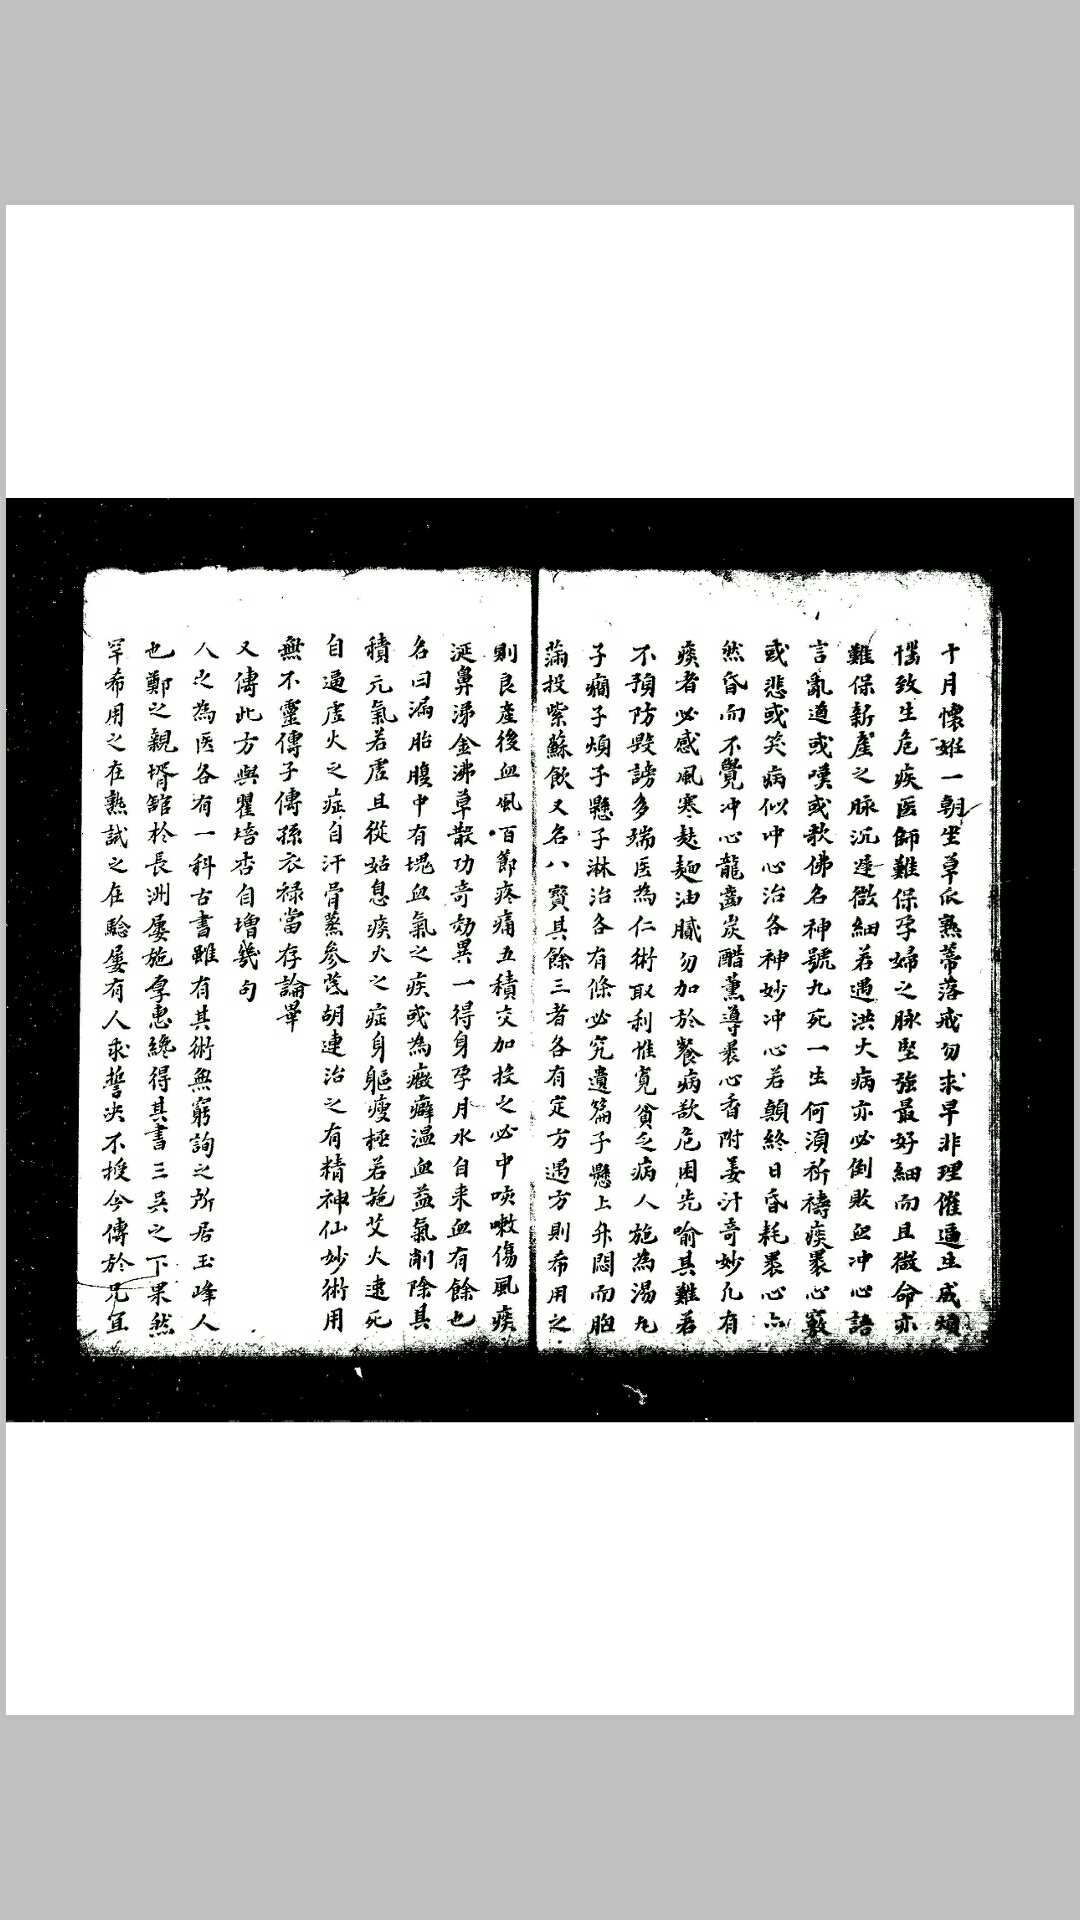 十月懷姙一朝坐草瓜熟蒂落戒勿求早非理催逼生成煩
惱致生危疾医師難保孕婦之脉堅強最好細而且微命亦
難保新產之脉沉遲微細若遇洪大病亦必倒敗血冲心語
言亂道或嘆或歌佛名神號九死一生何湏祈禱痰裹心竅
或悲或笑病似冲心治各神妙冲心若顛終日昏耗裹心亦
然昏而不覺冲心龍齒炭醋薰導裹心香附姜汗奇妙凢有
痰者必感風寒麸麺油膩勿加於餐病欵危困先喻其難若
不預防毀謗多端医為仁術取利惟寬貧乏病人施為湯丸
子癇子煩子懸子淋治各有條必究遺篇子懸上升悶而胎
滿投紫蘇飲又名八寳其餘三者各有定方遇方則希用之
則良產後血風百節疼痛五積交加投之必中咳嗽傷風痰
涎鼻涕金沸草散功奇効異一得身孕月水自来血有餘也
名曰漏胎腹中有塊血氣之疾或為癥癖温血益氣削除其
積元氣若虚且從姑息痰火之症身軀瘦極若施艾火速死
自逼虚火之症自汗骨蒸參芪胡連治之有精神仙妙術用
無不靈傳子傳孫衣祿當存論畢
又傳此方與瞿培杏自增幾句
人之為医各有一科古書雖有其術無窮詢之所居玉峰人
也鄭之親壻舘於長洲屢施厚惠纔得其書三吳之下果然
罕希用之在熟試之在驗屢有人求誓决不授今傳於兄宜